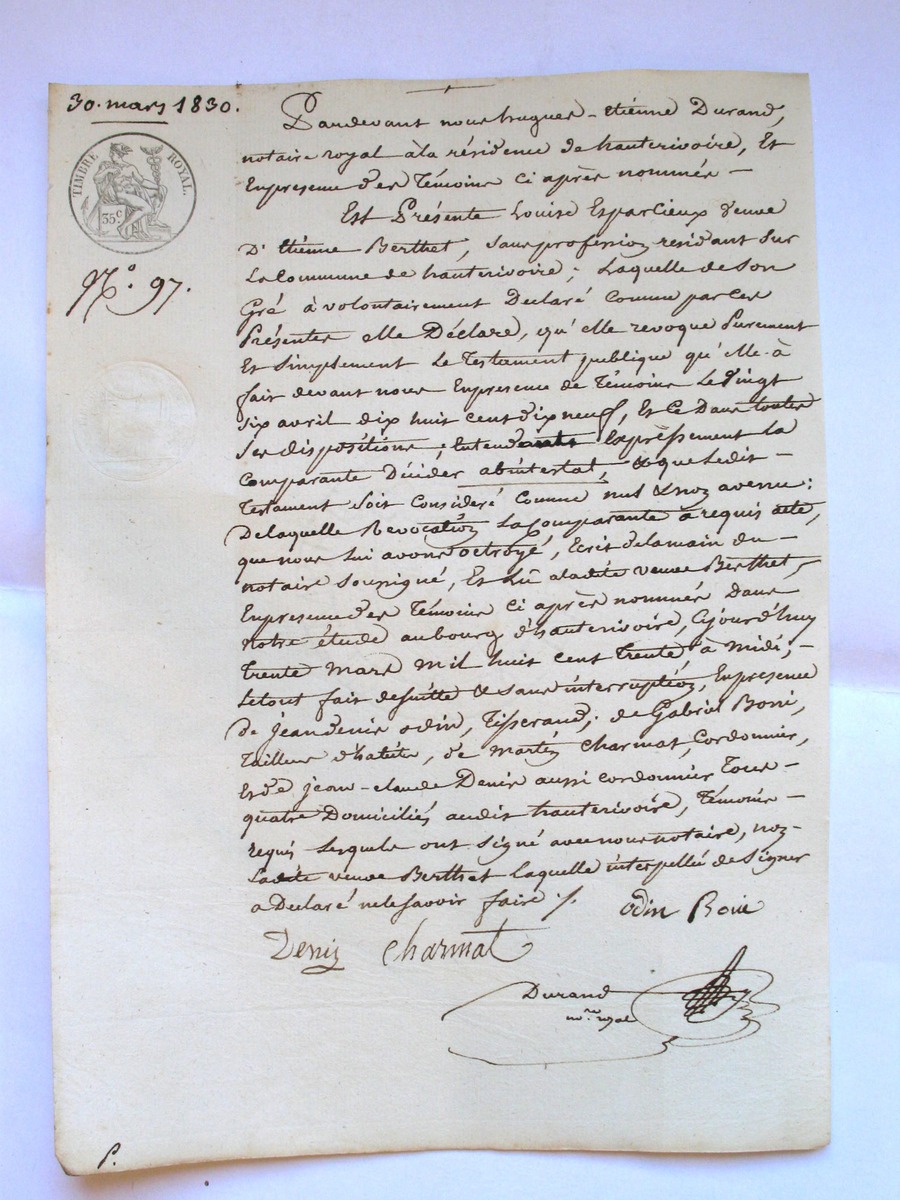 30. mars 1830.
TIMBRE ROYAL.
35c
No. 97.
Pardevant nous hugues-etiénne Durand,
notaire royal à la résidence de hauterivoire, Et
Enpresence des Témoins ci après nommés —
Est Présente Louise Esparcieux veuve
D'Etiénne Berthet, sans profession résidant sur
La Commune de hauterivoire; Laquelle de son
Gré à volontairement Déclaré comme par ces
Présentes elle Déclare, qu'elle revoque Purement
Et Simplement Le Testament publique qu'elle à
fait devant nous Enpresence de Témoins Le vingt
six avril dix huit cent dix neuf, Et Ce Dans toutes
Ses dispositions; Entendante Expressement La
Comparante Décider abintestat, & que Ledit —
Testament soit Consideré Comme nul & noz avenu:
De laquelle Revocatioz La Comparante à requis acte,
que nous Lui avons octroyé, Ecrit de la main du —
notaire soussigné, Et Lû a ladite veuve Berthet,
Enpresence des Témoins ci après nommés Dans
notre étude au bourg d'hauterivoire, Cejourd'huy
trente mars mil huit cent trente à midi; —
Le tout fait de suitte & sans interruptioz, Enpresence
de jean denis odin, Tisserand; de Gabriel Boni,
tailleur d'habits, de martiz charmat, Cordonnier,
Et de jean-claude Denis aussi cordonnier Tous —
quatre Domiciliés audit hauterivoire, Témoins —
requis Lesquels ont signé avec nous notaire, noz
Ladite veuve Berthet Laquelle interpellée de Signer
a Déclaré ne le savoir faire ./.
odin Boni
Deniz charmat
Durand
nore royal
P.